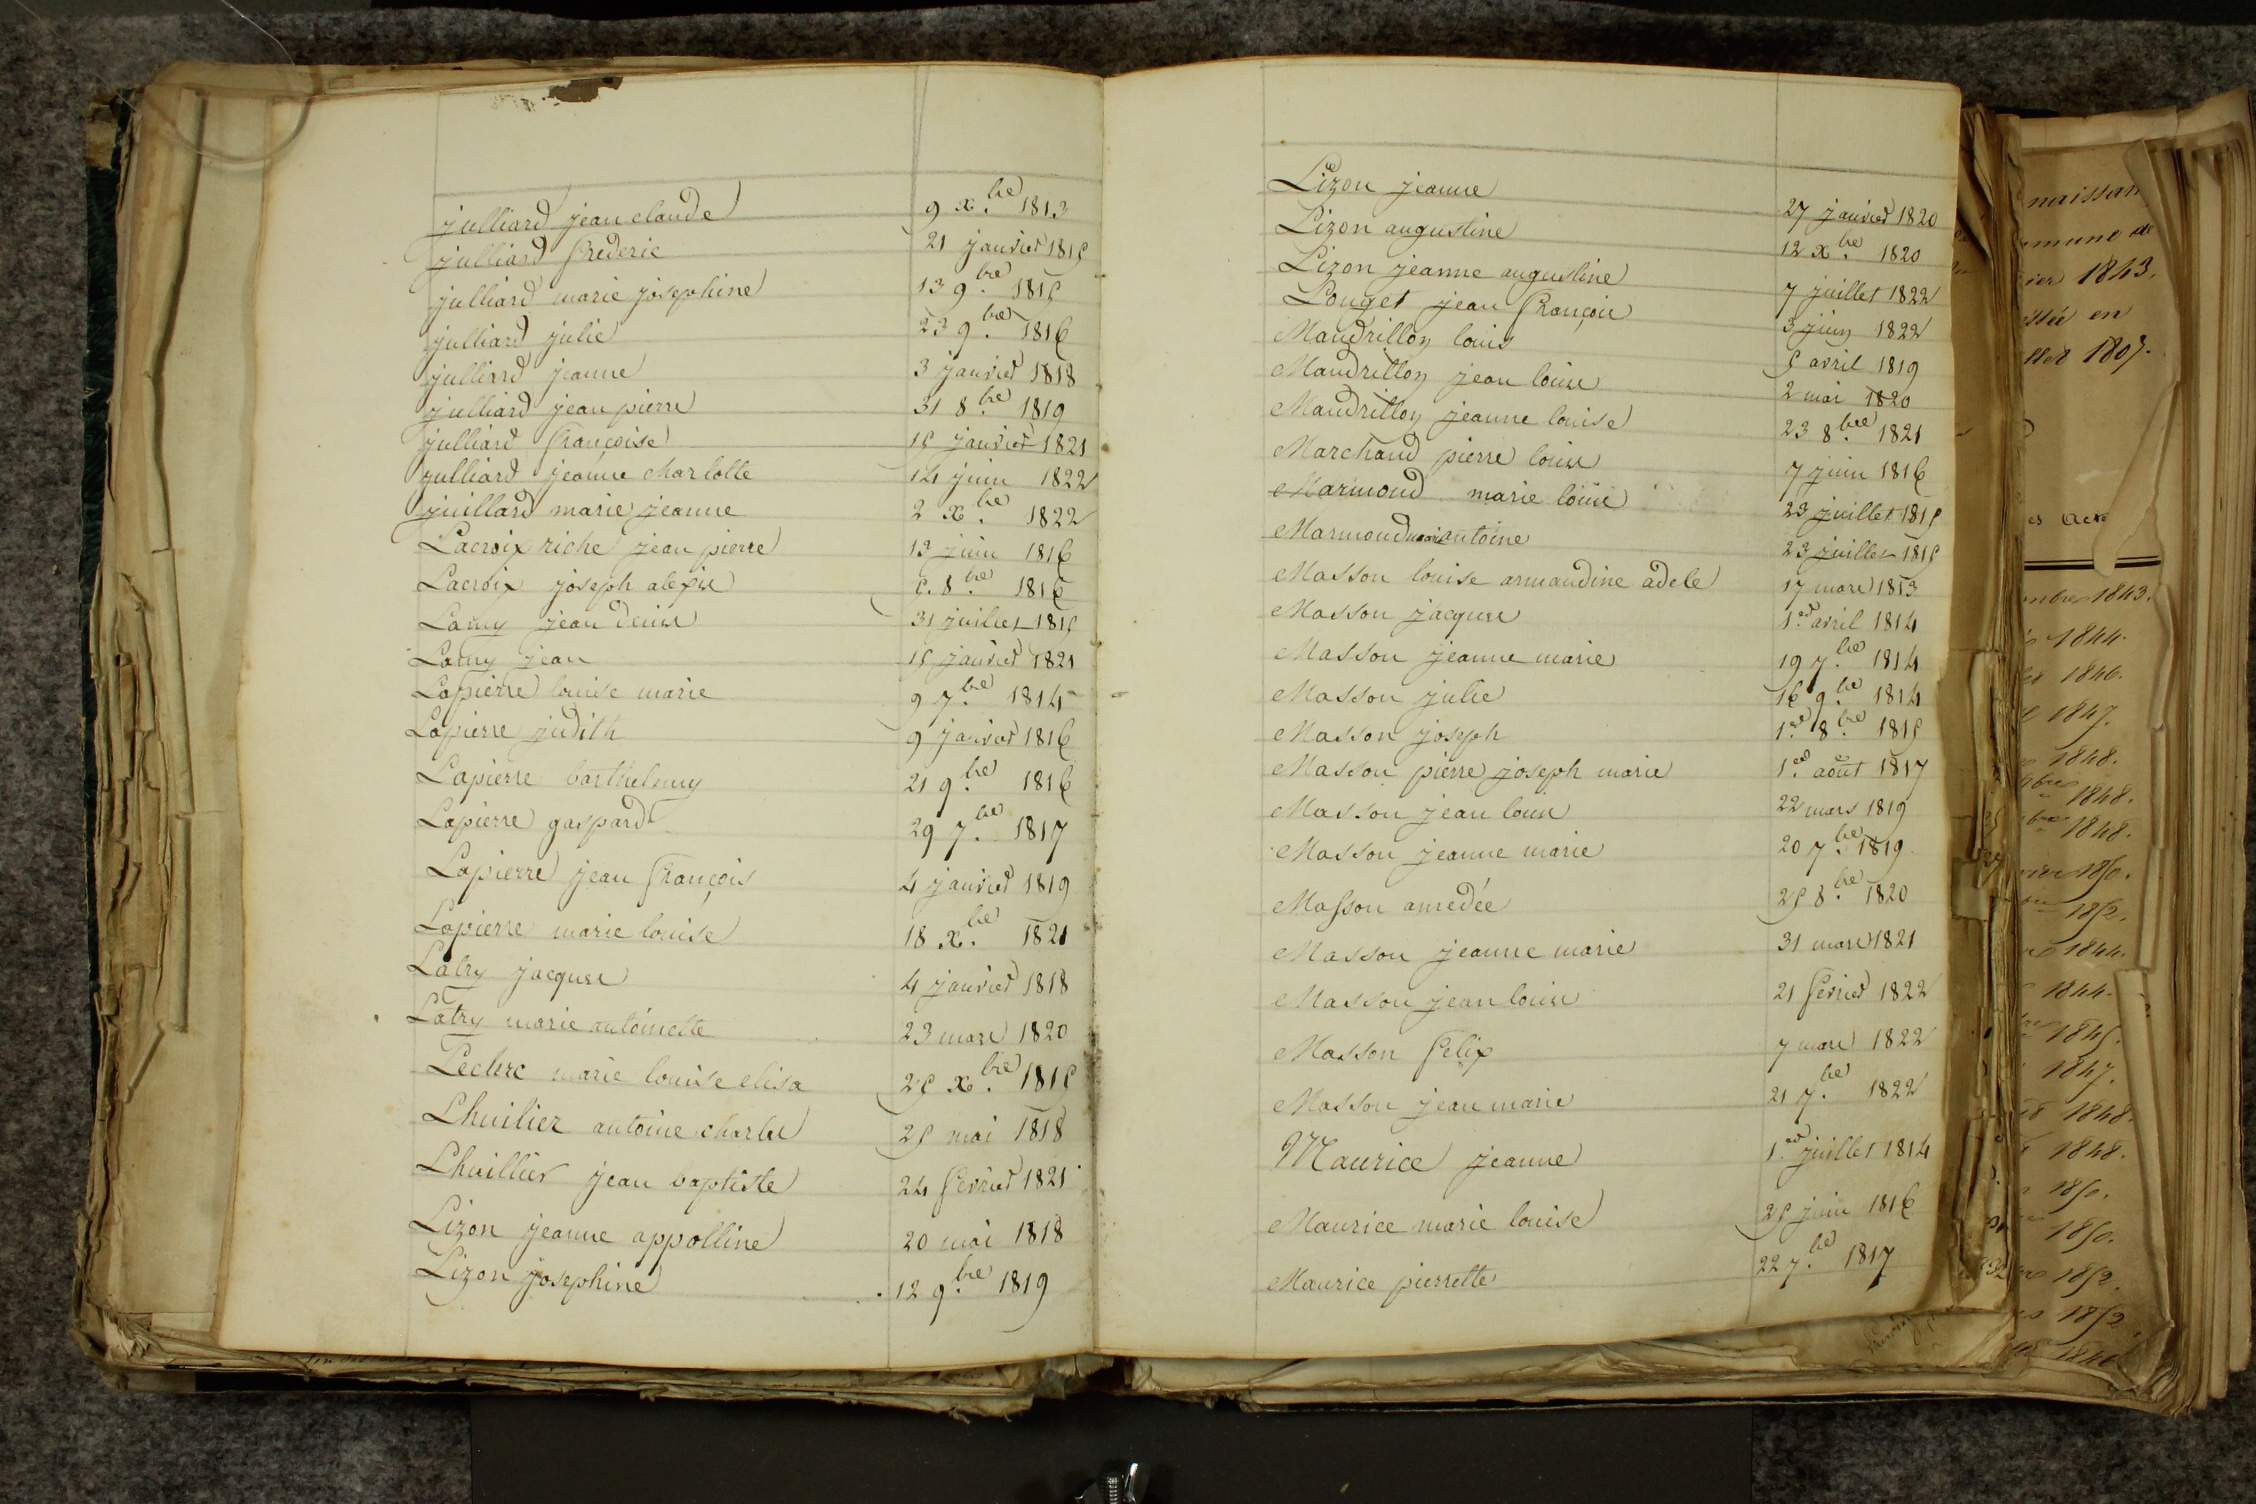 julliard jean claude 9 xbre 1813
julliard frederic 21 janvier 1815
julliard marie josephine 13 9bre 1815
julliard julie 23 9bre 1816
julliard jeanne 3 janvier 1818
julliard jean pierre 31 8bre 1819
julliard françoise 15 janvier 1821
julliard jeanne charlotte 14 juin 1822
juillard marie jeanne 2 xbre 1822
Lacroix riche jean pierre 13 juin 1816
Lacroix joseph alexis 6. 8bre 1816
Lamy jean denis 31 juillet 1815
Lamy jean 15 janvier 1821
Lapierre louise marie 9 7bre 1814
Lapierre judith 9 janvier 1816
Lapierre barthelemy 21 9bre 1816
Lapierre gaspard 29 7bre 1817
Lapierre jean françois 4 janvier 1819
Lapierre marie louise 18 xbre 1821
Latry jacques 4 janvier 1818
Latry marie antoinette 23 mars 1820
Leclerc marie louise elisa 25 xbre 1815
Lhuilier antoine charles 25 mai 1818
Lhuillier jean baptiste 24 fevrier 1821
Lizon jeanne appolline 20 mai 1818
Lizon josephine 12 9bre 1819
Lizon jeanne 27 janvier 1820
Lizon augustine 12 xbre 1820
Lizon jeanne augustine 7 juillet 1822
Louget jean françois 3 juin 1822
Maudrillon louis 5 avril 1819
Maudrillon jean louis 2 mai 1820
Maudrillon jeanne louise 23 8bre 1821
Marchand pierre louis 7 juin 1816
Marmoud marie louise 23 juillet 1815
Marmoud marie antoine 23 juillet 1815
Masson louise armandine adele 17 mars 1813
Masson jacques 1er avril 1814
Masson jeanne marie 19 7bre 1814
Masson julie 16 9bre 1814
Masson joseph 1er 8bre 1815
Masson pierre joseph marie 1er août 1817
Masson jean louis 22 mars 1819
Masson jeanne marie 20 7bre 1819
Masson amedée 25 8bre 1820
Masson jeanne marie 31 mars 1821
Masson jean louis 21 fevrier 1822
Masson felix 7 mars 1822
Masson jean marie 21 7bre 1822
Maurice jeanne 1er juillet 1814
Maurice marie louise 25 juin 1816
Maurice pierrette 22 7bre 1817
1843.
en
1807.
1843.
1844.
1846.
1847.
1848.
1848.
1848.
1850.
1852.
1844.
1844.
1845.
1847.
1848.
1848.
1850.
1850.
1852.
1852.